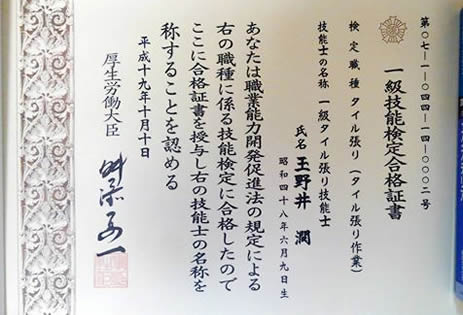 第〇七-一-〇四四-一四-〇〇〇二号
一級技能検定合格証書
検定職種 タイル張り(タイル張り作業)
技能士の名称 一級タイル張り技能士
氏名 玉野井 潤
昭和四十八年六月九日生
あなたは職業能力開発促進法の規定による
右の職種に係る技能検定に合格したので
ここに合格証書を授与し右の技能士の名称を
称することを認める
平成十九年十月十日
厚生労働大臣
舛添要一